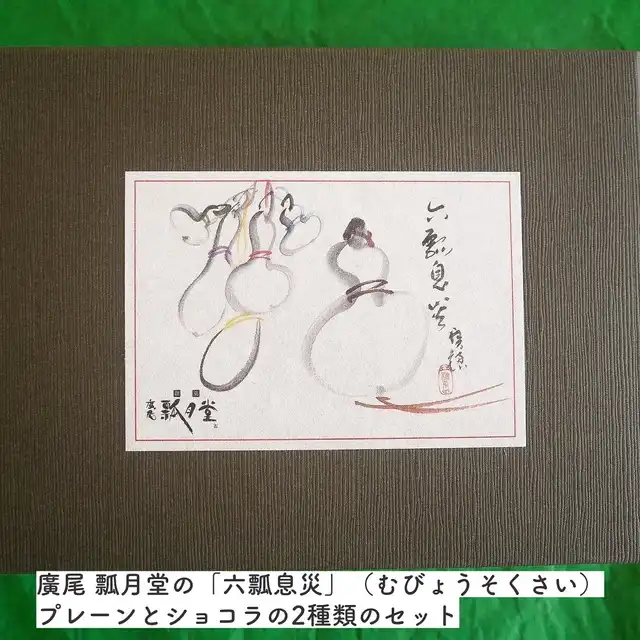 六瓢息災
廣尾
瓢月堂
廣尾 瓢月堂の「六瓢息災」（むびょうそくさい）
プレーンとショコラの2種類のセット